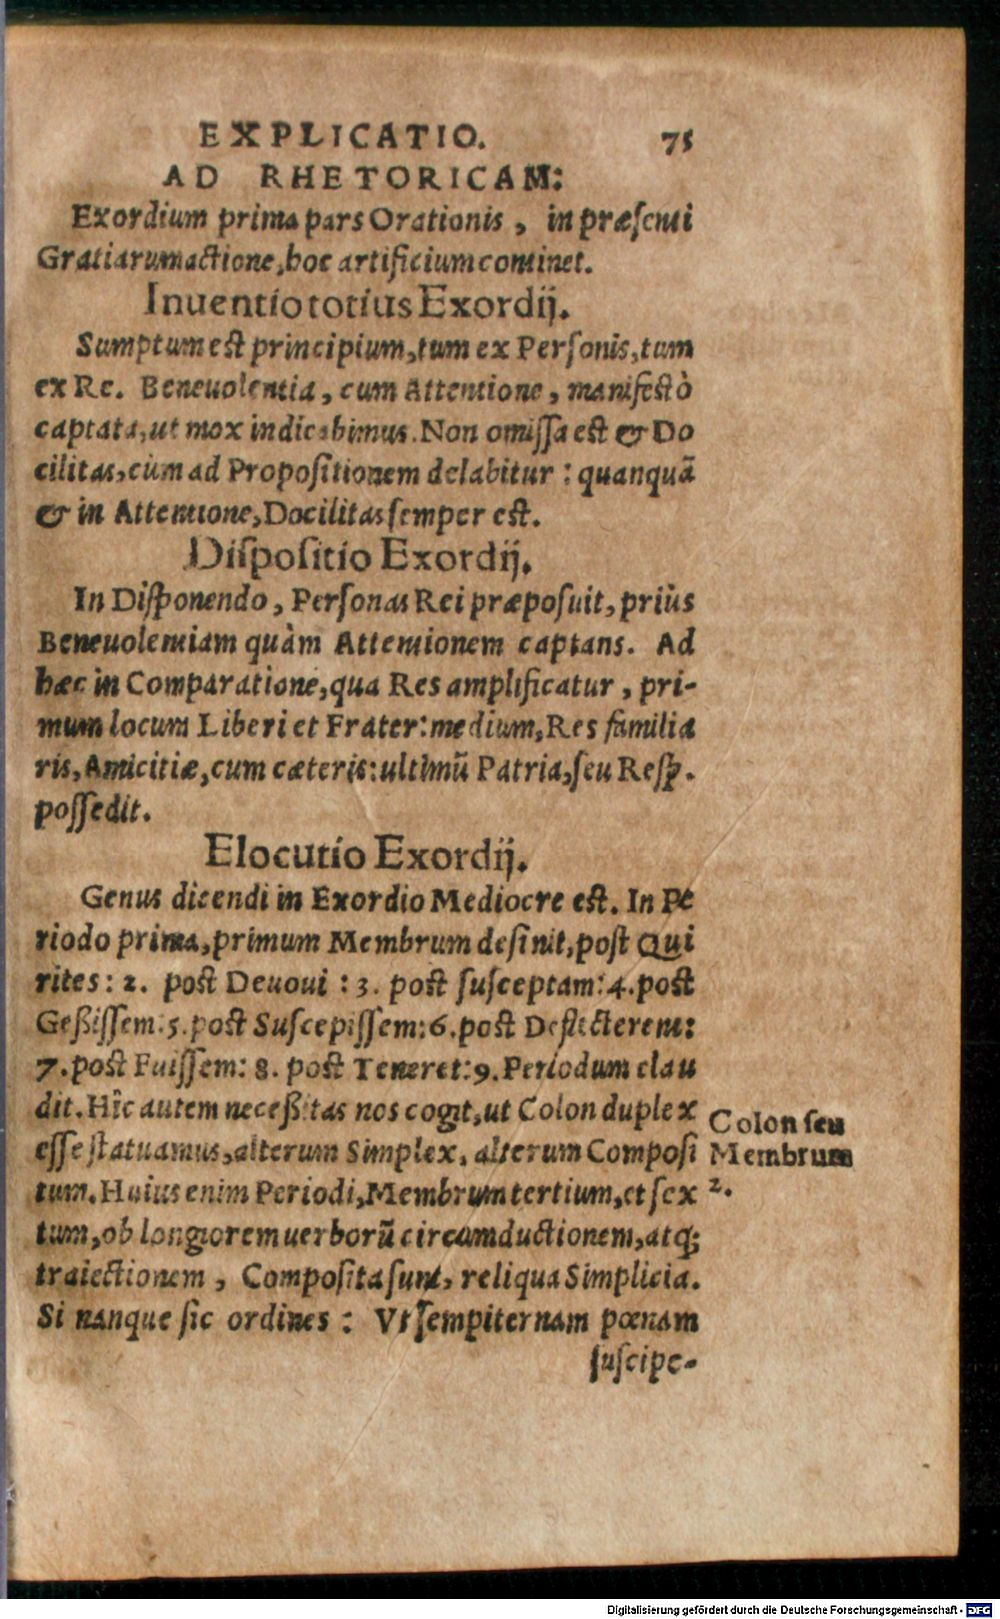 EXPLICATIO. 75
AD RHETORICAM:
Exordium prima pars Orationis, in præsenti
Gratiarumactione, hoc artificium continet.
Inuentio totius Exordij.
Sumptum est principium, tum ex Personis, tum
ex Re. Beneuolentia, cum Attentione, manifestò
captata, ut mox indicabimus. Non omissa est & Do
cilitas, cùm ad Propositionem delabitur: quanquã
& in Attentione, Docilitas semper est.
Dispositio Exordij.
In Disponendo, Personas Rei præposuit, priùs
Beneuolentiam quàm Attentionem captans. Ad
hæc in Comparatione, qua Res amplificatur, pri-
mum locum Liberi et Frater: medium, Res familia
ris, Amicitiæ, cum cæteris: ultimũ Patria, seu Resp.
possedit.
Elocutio Exordij.
Genus dicendi in Exordio Mediocre est. In Pe
riodo prima, primum Membrum desinit, post Qui
rites: 2. post Deuoui: 3. post susceptam: 4. post
Geßissem: 5. post Suscepissem: 6. post Deflecterem:
7. post Fuissem: 8. post Teneret: 9. Periodum clau
dit. Hîc autem neceßitas nos cogit, ut Colon duplex
esse statuamus, alterum Simplex, alterum Composi
tum. Huius enim Periodi, Membrum tertium, et sex
tum, ob longiorem uerborũ circumductionem, atq;
traiectionem, Composita sunt, reliqua Simplicia.
Si nanque sic ordines: Vt sempiternam pœnam
suscipe-
Colon seu
Membrum
2.
Digitalisierung gefördert durch die Deutsche Forschungsgemeinschaft - DFG